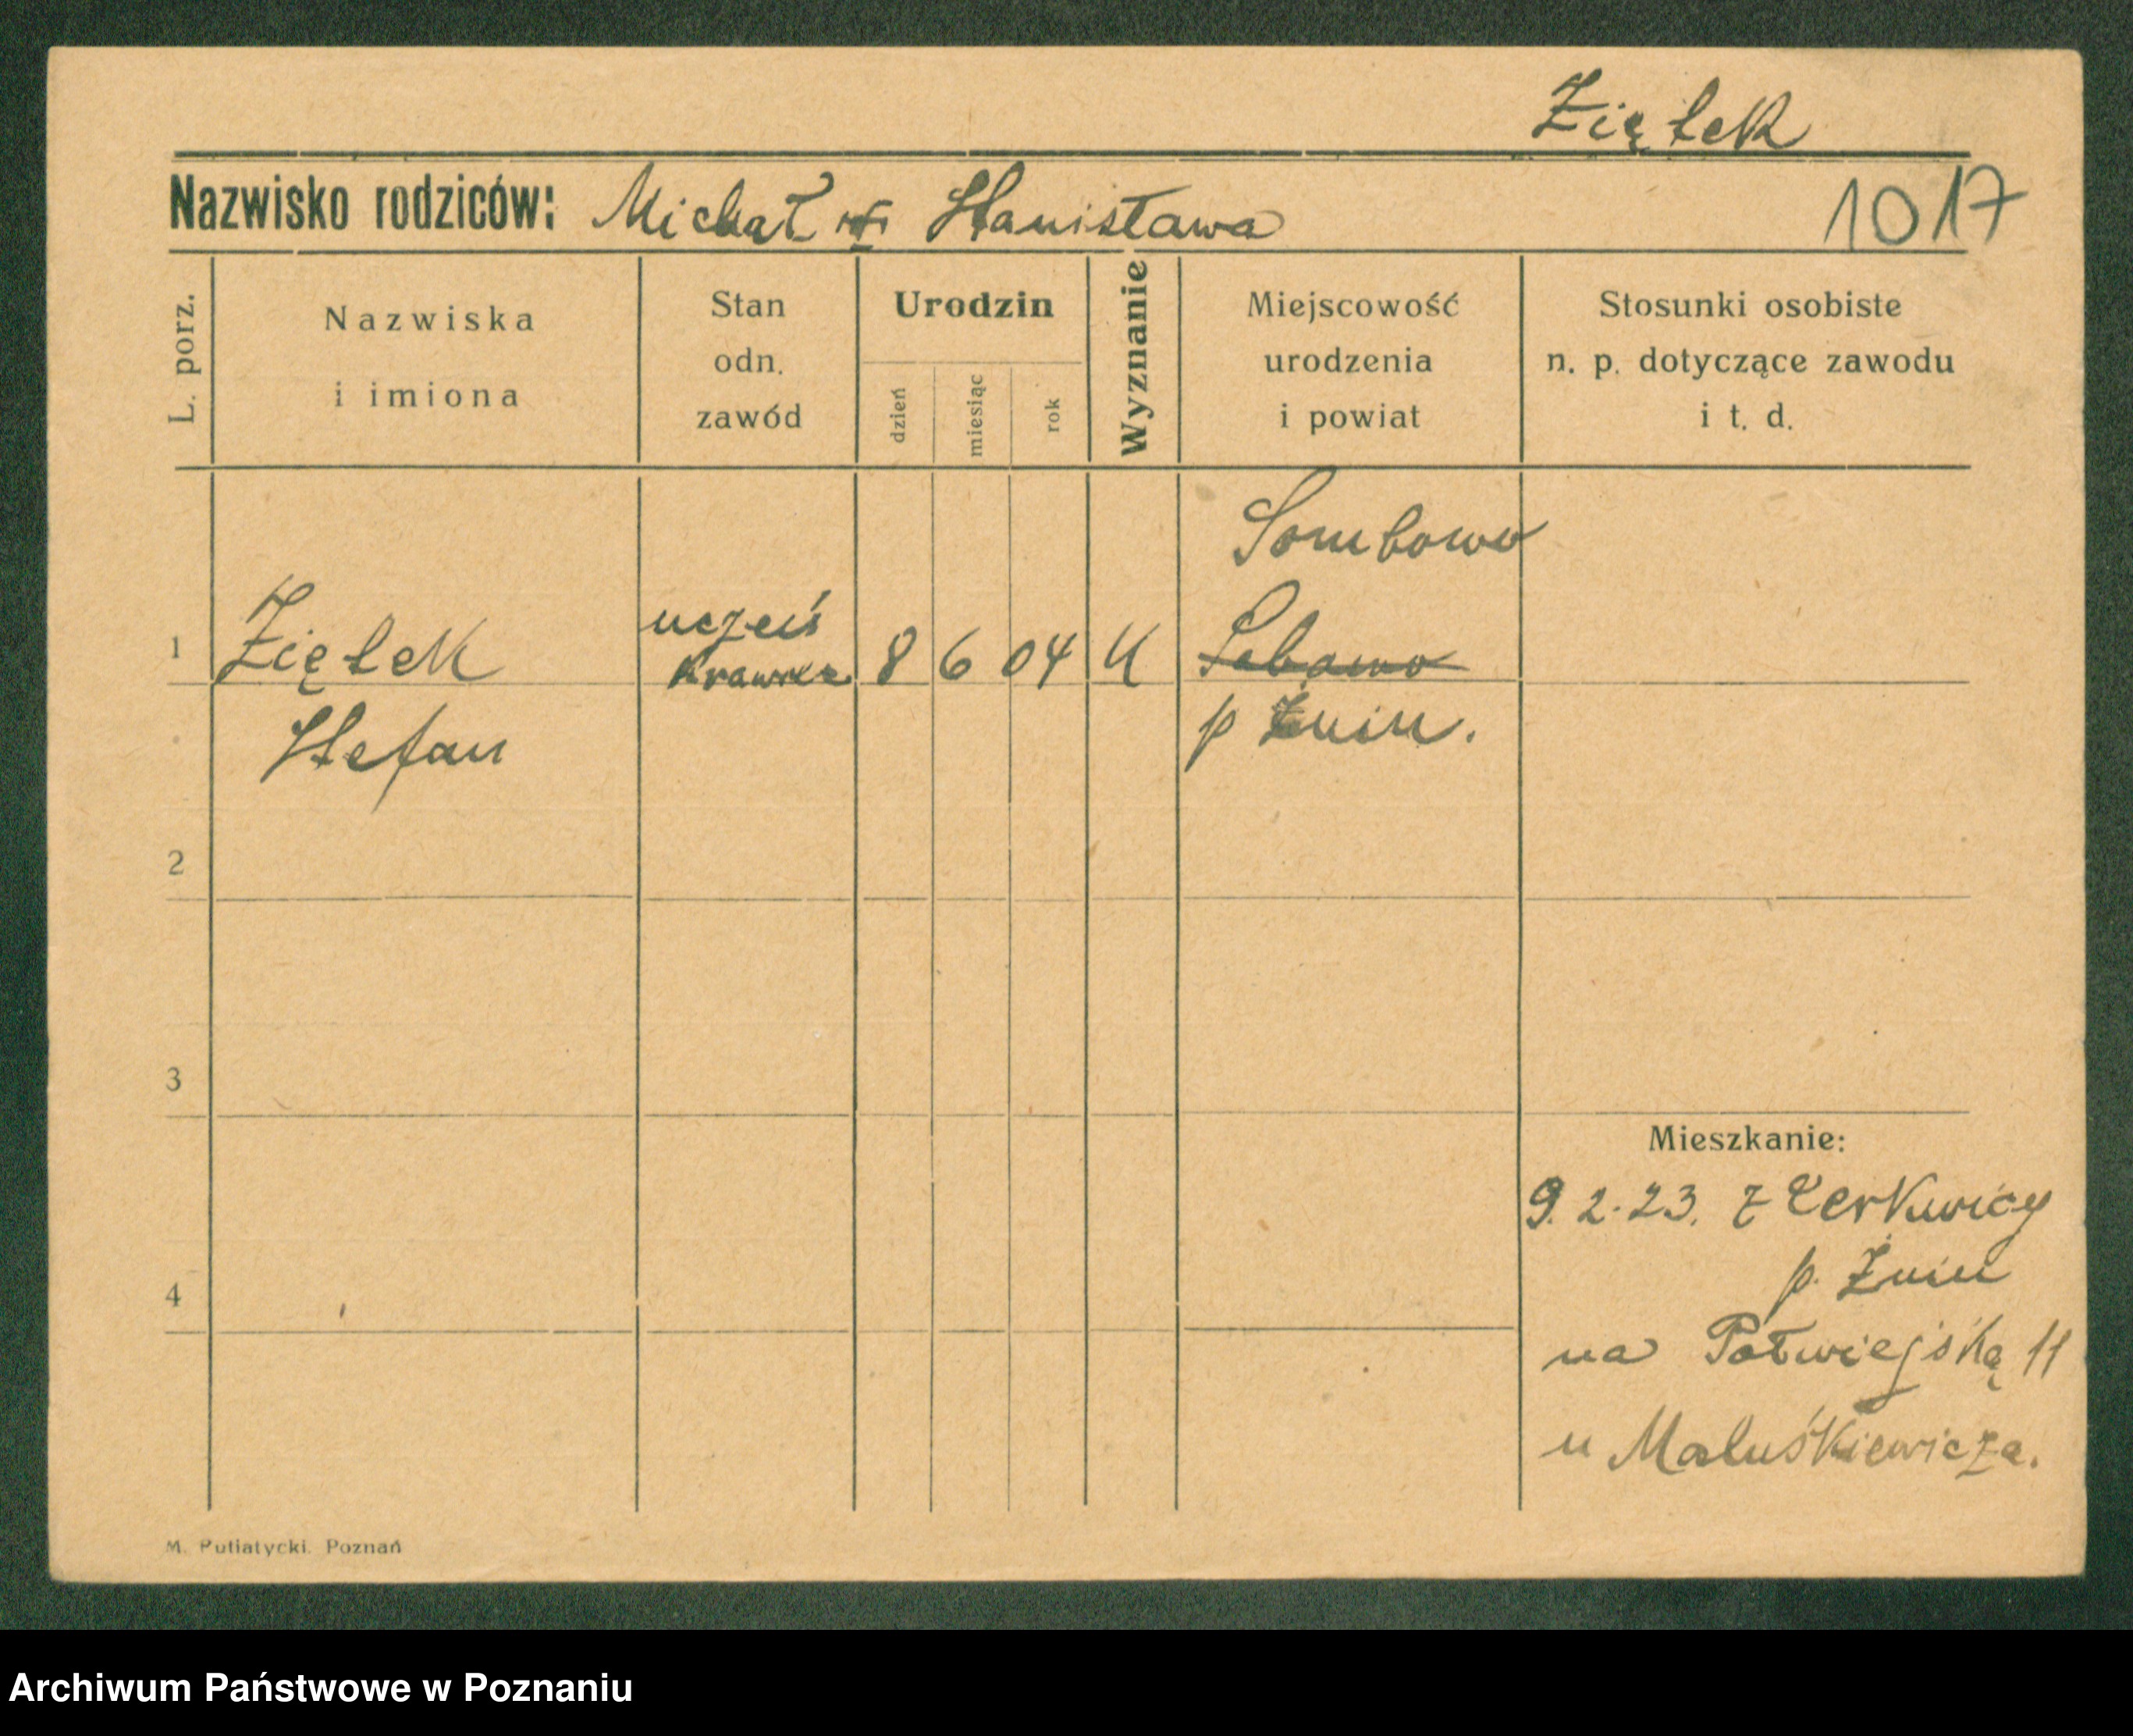 Ziętek
Nazwisko rodziców: Michał i Stanisława
1017
L. porz.
Nazwiska
i imiona
Stan
odn.
zawód
Urodzin
dzień
miesiąc
rok
Wyznanie
Miejscowość
urodzenia
i powiat
Stosunki osobiste
n. p. dotyczące zawodu
i t. d.
Sombowo
1 Ziętek uczeń 8 6 04 K
krawiec
Stefan p Żnin.
2
3
Mieszkanie:
9.2.23. z Cerkwicy
p. Żnin
4
na Półwiejską 11
u Maluśkiewicza.
M. Putiatycki. Poznań
Archiwum Państwowe w Poznaniu